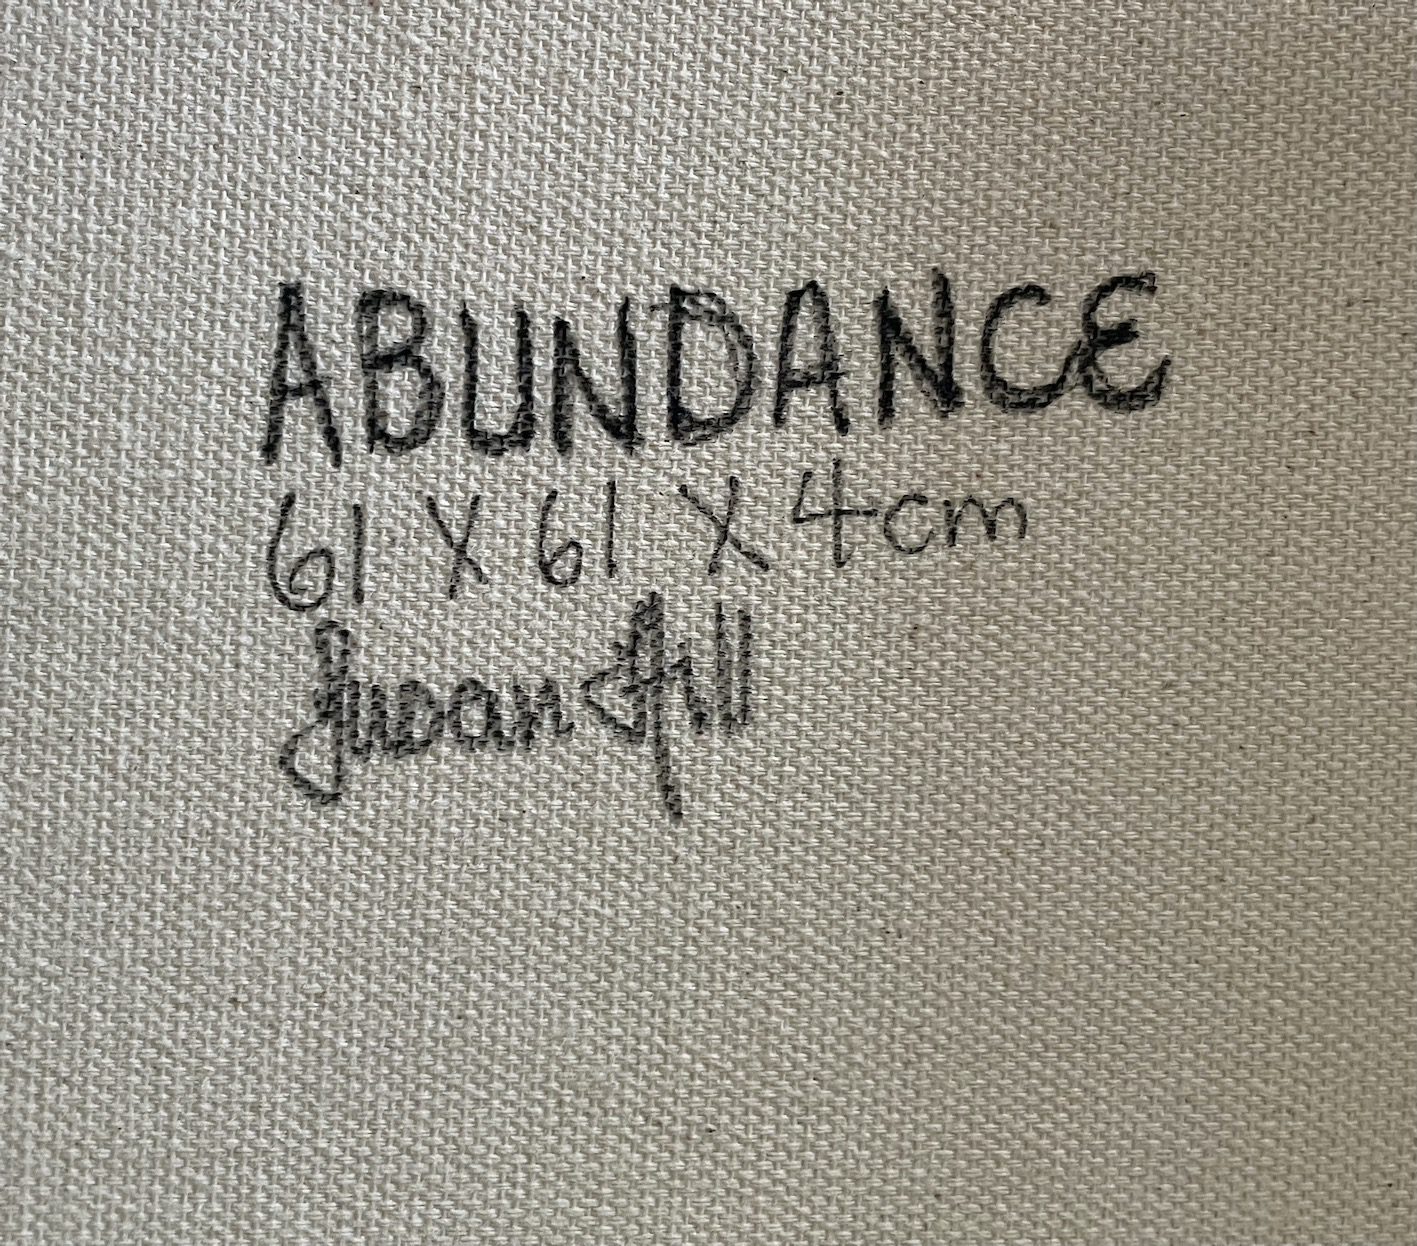 ABUNDANCE
61 X 61 X 4cm
Susan Hill